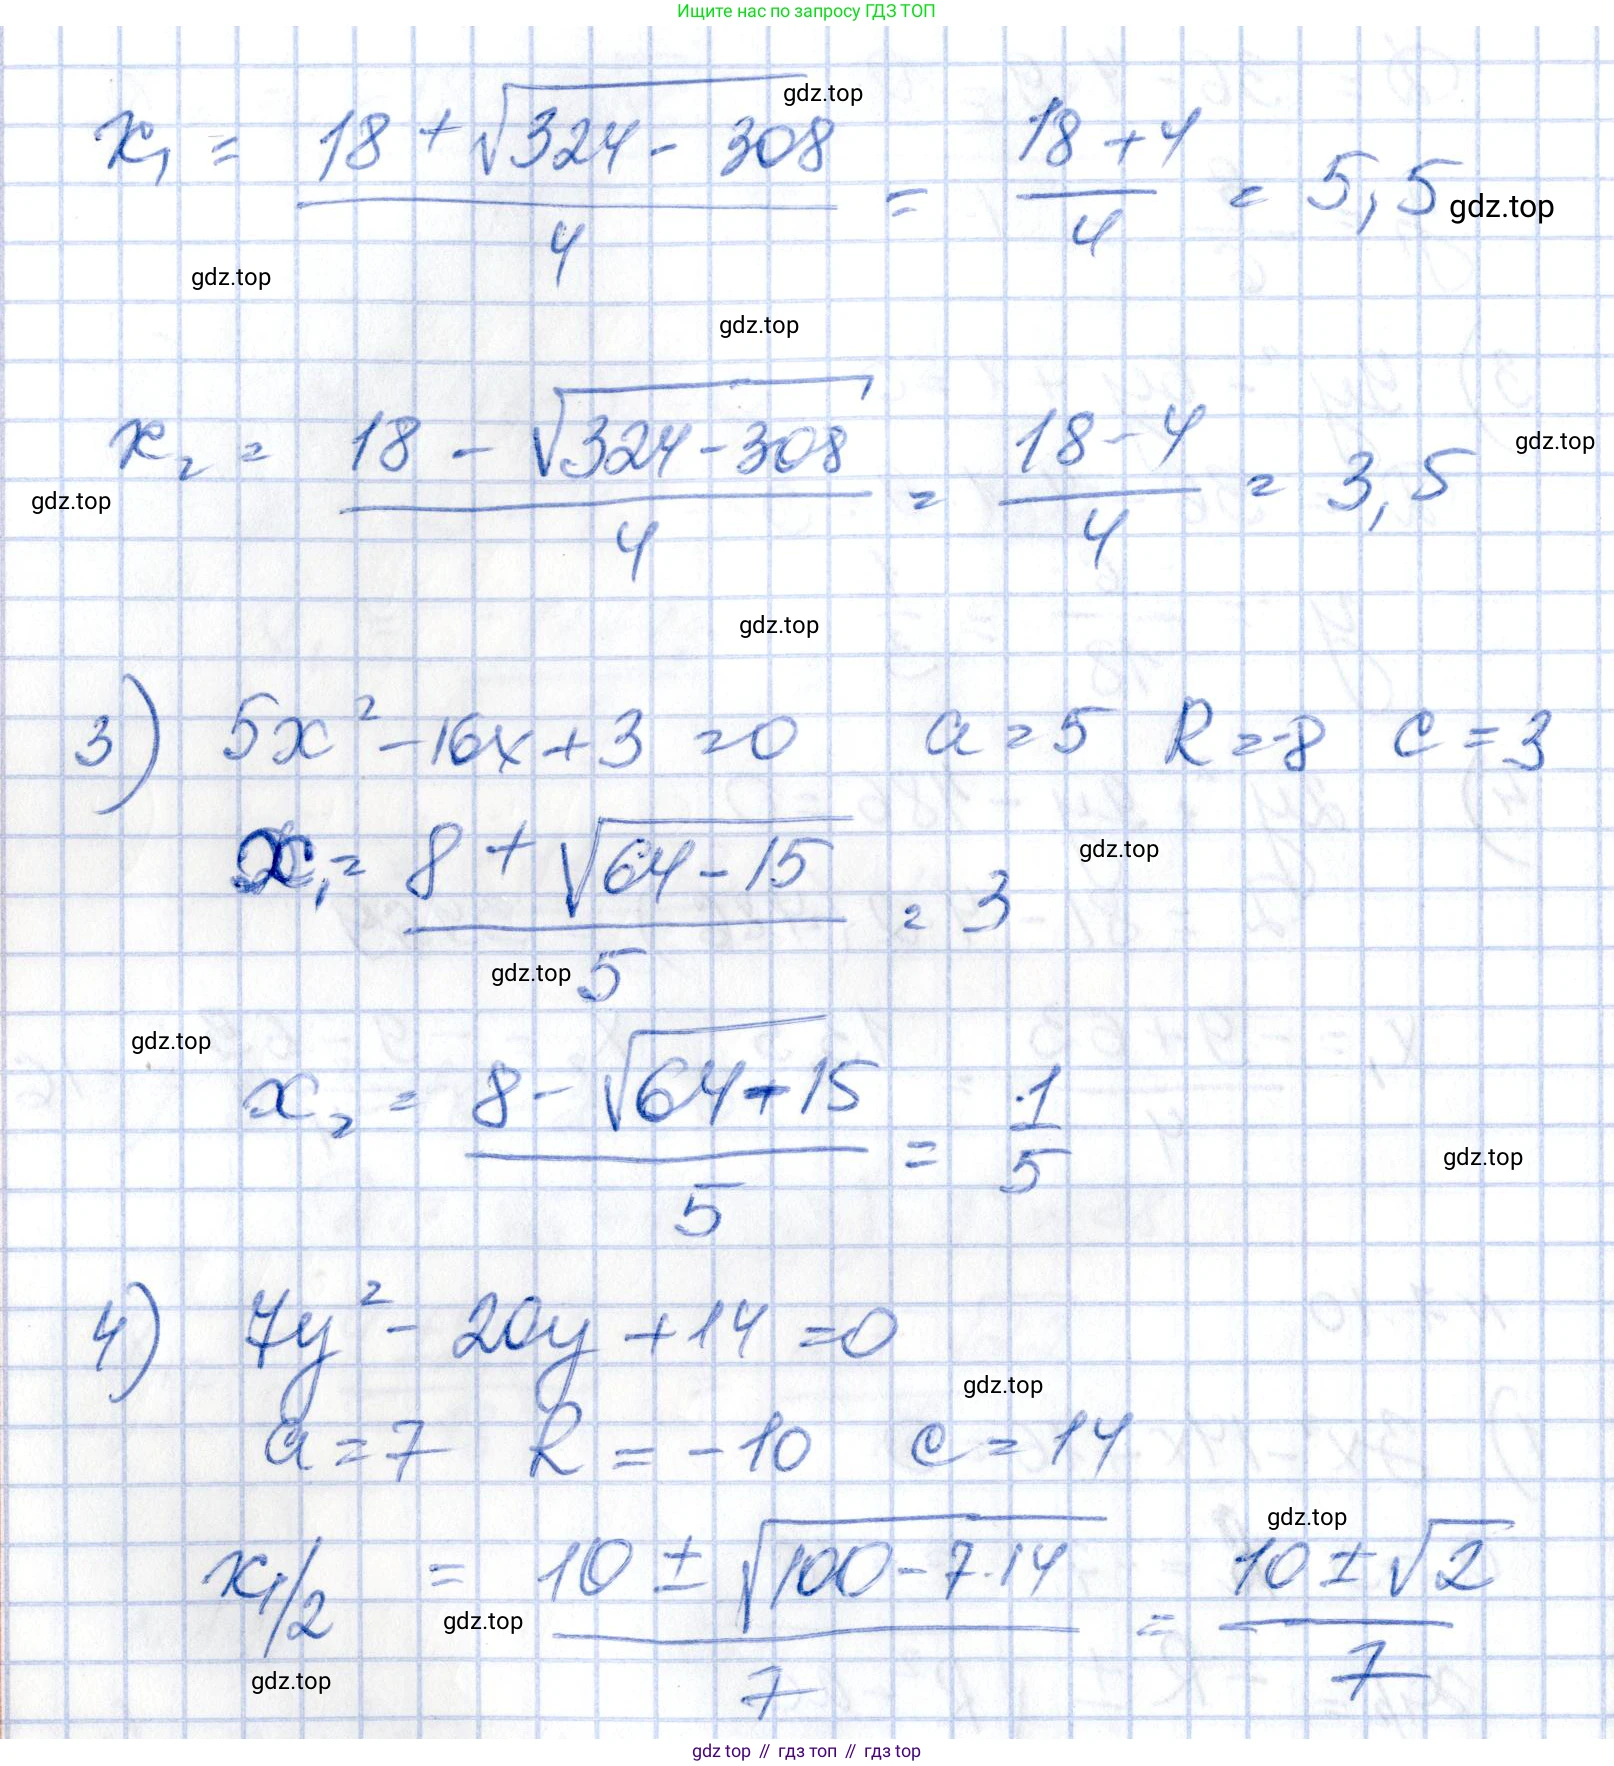 Ищите нас по запросу ГДЗ ТОП
gdz.top
x₁ = (18 + √(324 - 308))/4 = (18 + 4)/4 = 5,5
gdz.top
gdz.top
gdz.top
x₂ = (18 - √(324 - 308))/4 = (18 - 4)/4 = 3,5
gdz.top
gdz.top
gdz.top
3) 5x² - 16x + 3 = 0 a = 5 R = -8 c = 3
x₁ = (8 + √(64 - 15))/5 = 3
gdz.top
gdz.top
gdz.top
x₂ = (8 - √(64 - 15))/5 = 1/5
gdz.top
4) 7y² - 20y + 14 = 0
gdz.top
a = 7 R = -10 c = 14
gdz.top
x₁/₂ = (10 ± √(100 - 7·14))/7 = (10 ± √2)/7
gdz.top
gdz.top
gdz top // гдз топ // гдз top